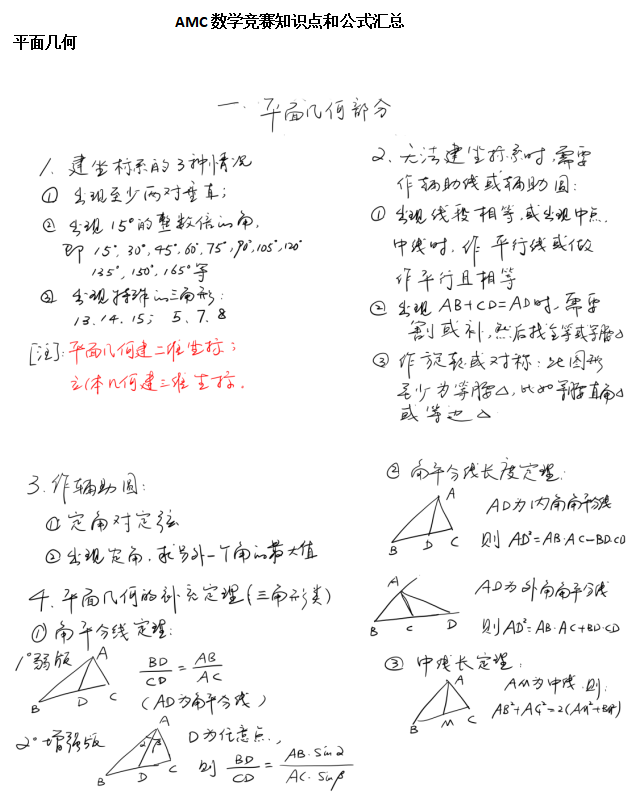 AMC 数学竞赛知识点和公式汇总
平面几何
一. 平面几何部分
1. 建坐标系的3种情况
① 出现至少两对垂直;
② 出现15°的整数倍的角,
即 15°, 30°, 45°, 60°, 75°, 90°, 105°, 120°
135°, 150°, 165° 等
③ 出现特殊的三角形:
13. 14. 15; 5. 7. 8
[注]: 平面几何建二维坐标;
立体几何建三维坐标.
2. 无法建坐标系时, 需要
作辅助线或辅助圆:
① 出现线段相等, 或出现中点.
中线时, 作平行线或做
作平行且相等
② 出现 AB+CD=AD时, 需要
割或补, 然后找全等或等腰△
③ 作旋转或对称: 此图形
至少为等腰△, 比如等腰直角△
或等边△
3. 作辅助圆:
① 定角对定弦
② 出现定角, 求另外一个角的最大值
4. 平面几何的补充定理(三角形类)
① 角平分线定理:
1° 弱版
A
B
D
C
BD/CD = AB/AC
(AD为角平分线)
2° 增强版
A
α β
B
D
C
D为任意点,
则 BD/CD = AB·sinα/AC·sinβ
② 角平分线长度定理:
A
B
D
C
AD为内角角平分线
则 AD²=AB·AC−BD·CD
A
B
C
D
AD为外角角平分线
则AD²=AB·AC+BD·CD
③ 中线长定理:
A
B
M
C
AM为中线, 则:
AB²+AC²=2(AM²+BM²)